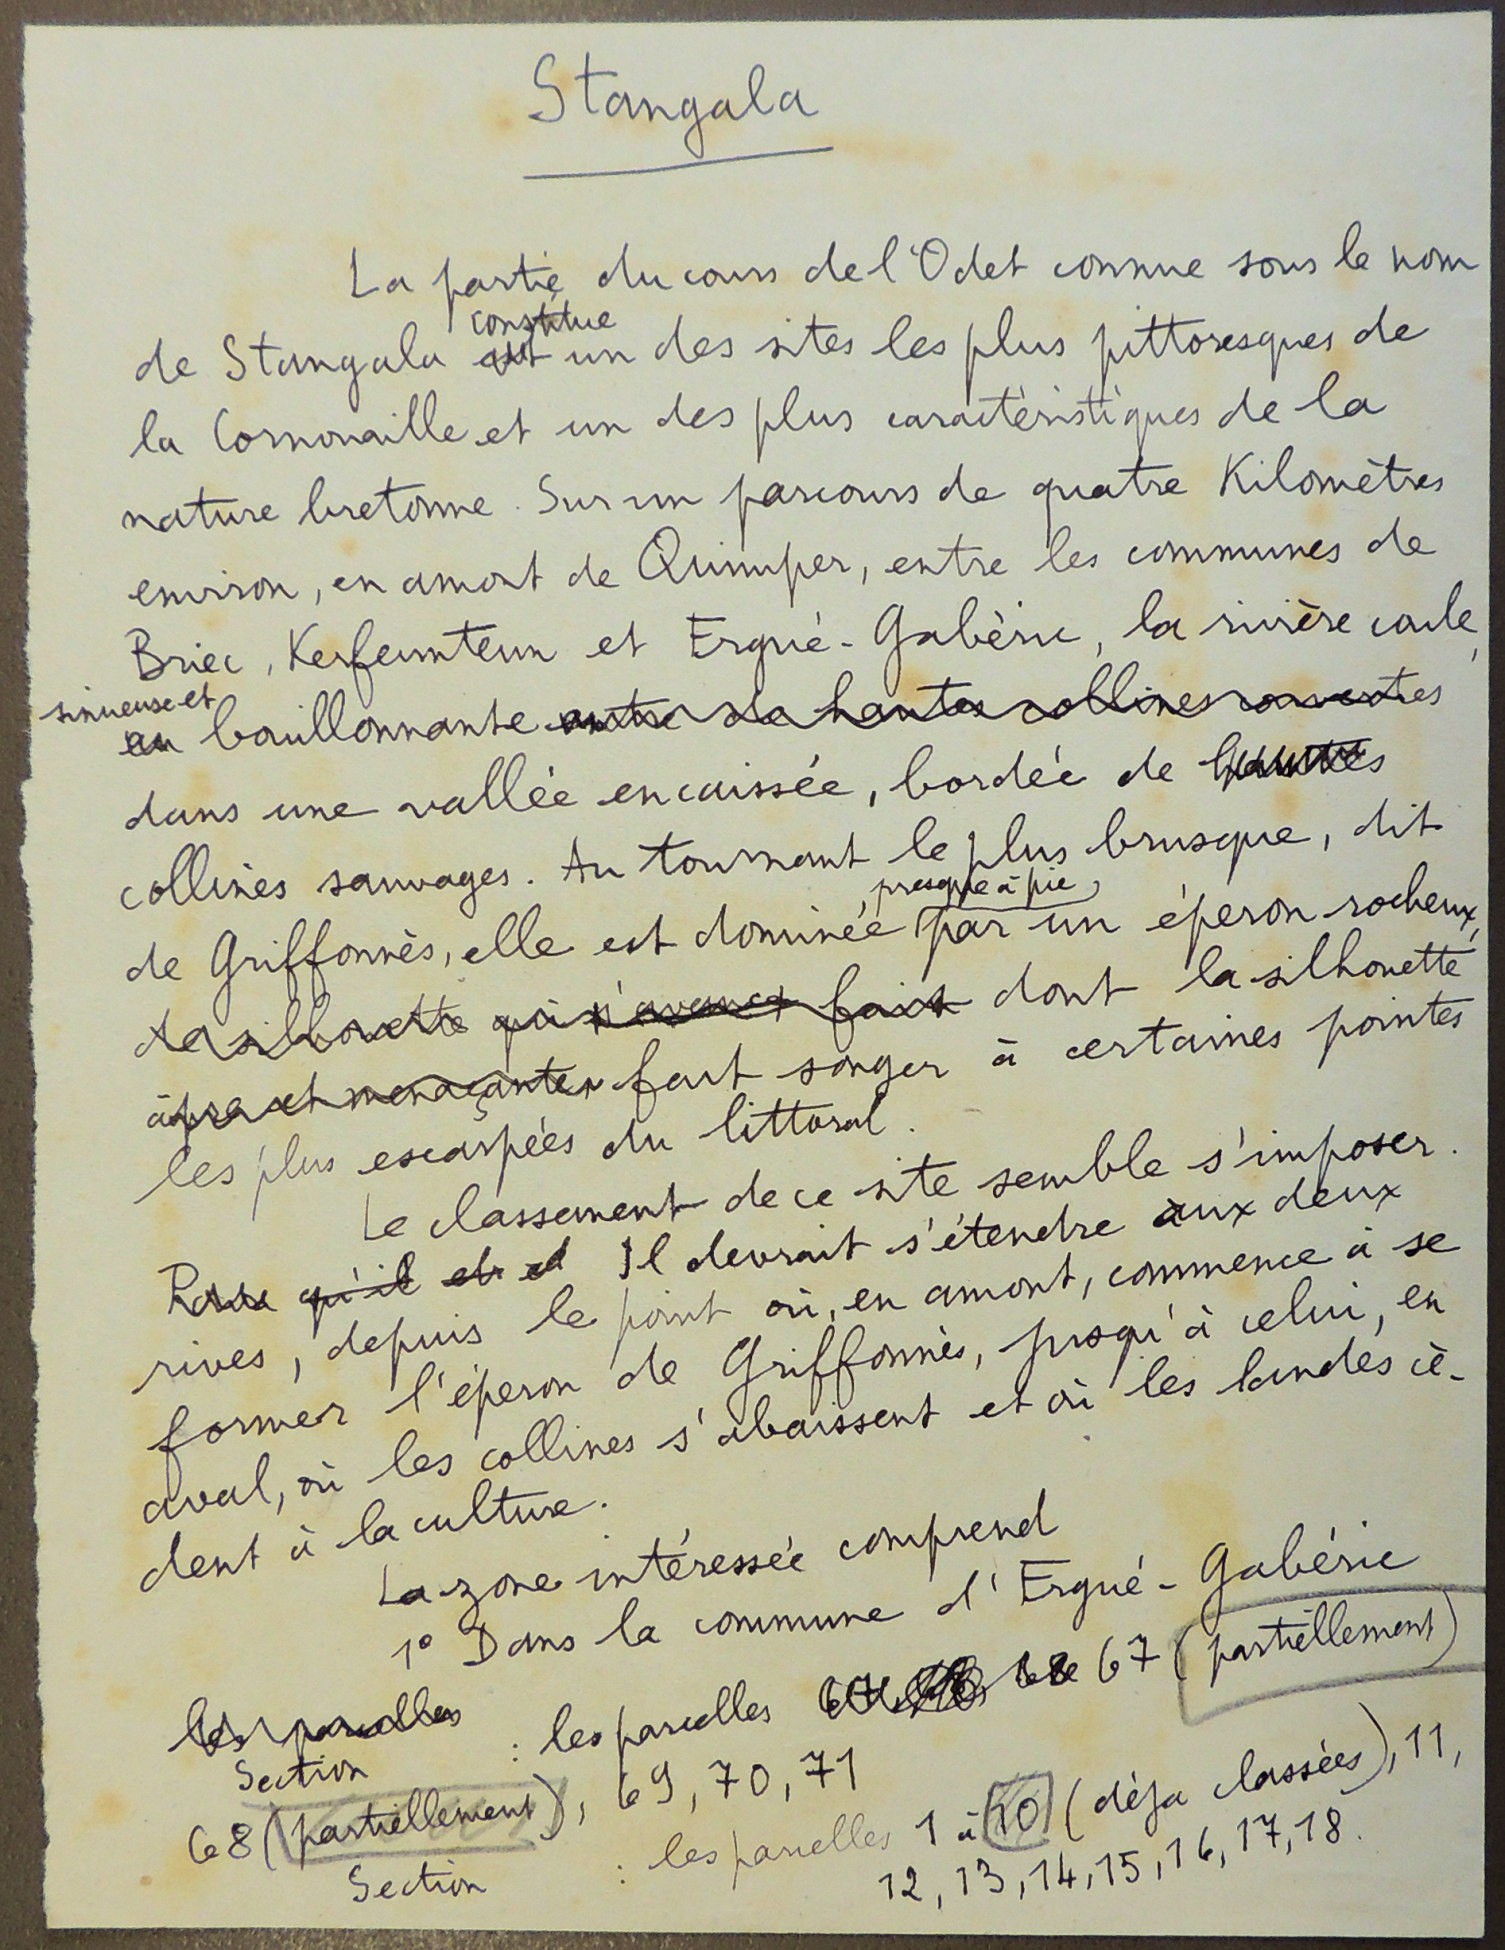 Stangala
La partie du cours de l'Odet connue sous le nom
constitue
de Stangala est un des sites les plus pittoresques de
la Cornouaille et un des plus caractéristiques de la
nature bretonne. Sur un parcours de quatre Kilomètres
environ, en amont de Quimper, entre les communes de
Briec, Kerfeunteun et Ergué-Gabéric, la rivière coule,
sinueuse et
bouillonnante entre de hautes collines couvertes
dans une vallée encaissée, bordée de hautes
collines sauvages. Au tournant le plus brusque, dit
, presque à pic,
de Griffonnès, elle est dominée par un éperon rocheux,
la silhouette qui s'avance fait dont la silhouette
âpre et menaçante fait songer à certaines pointes
les plus escarpées du littoral.
Le classement de ce site semble s'imposer.
qu'il Il devrait s'étendre aux deux
rives, depuis le point où, en amont, commence à se
former l'éperon de Griffonnès, jusqu'à celui, en
aval, où les collines s'abaissent et où les landes cè-
dent à la culture.
La zone intéressée comprend
1° Dans la commune d'Ergué-Gabéric
les parcelles : les parcelles 67 (partiellement)
Section
68 (partiellement), 69, 70, 71
Section : les parcelles 1 à 10 (déja classées), 11,
12, 13, 14, 15, 16, 17, 18.